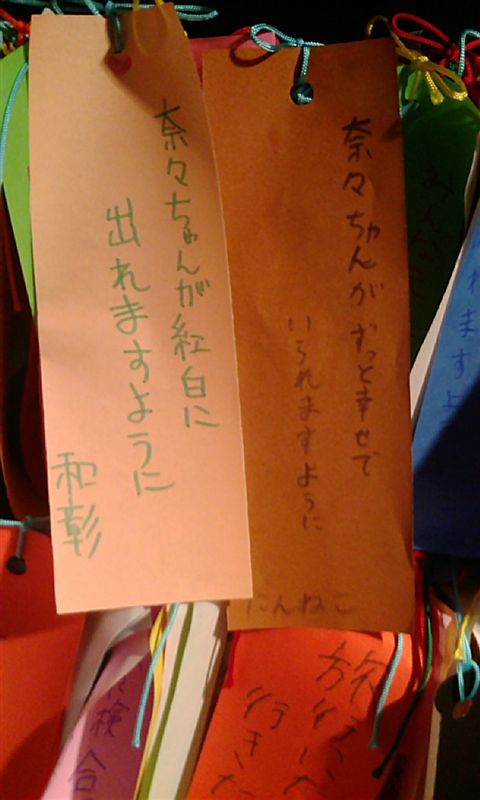 奈々ちゃんがずっと幸せで
いられますように
にんねこ
奈々ちゃんが紅白に
出れますように
和彰
検合
行きた